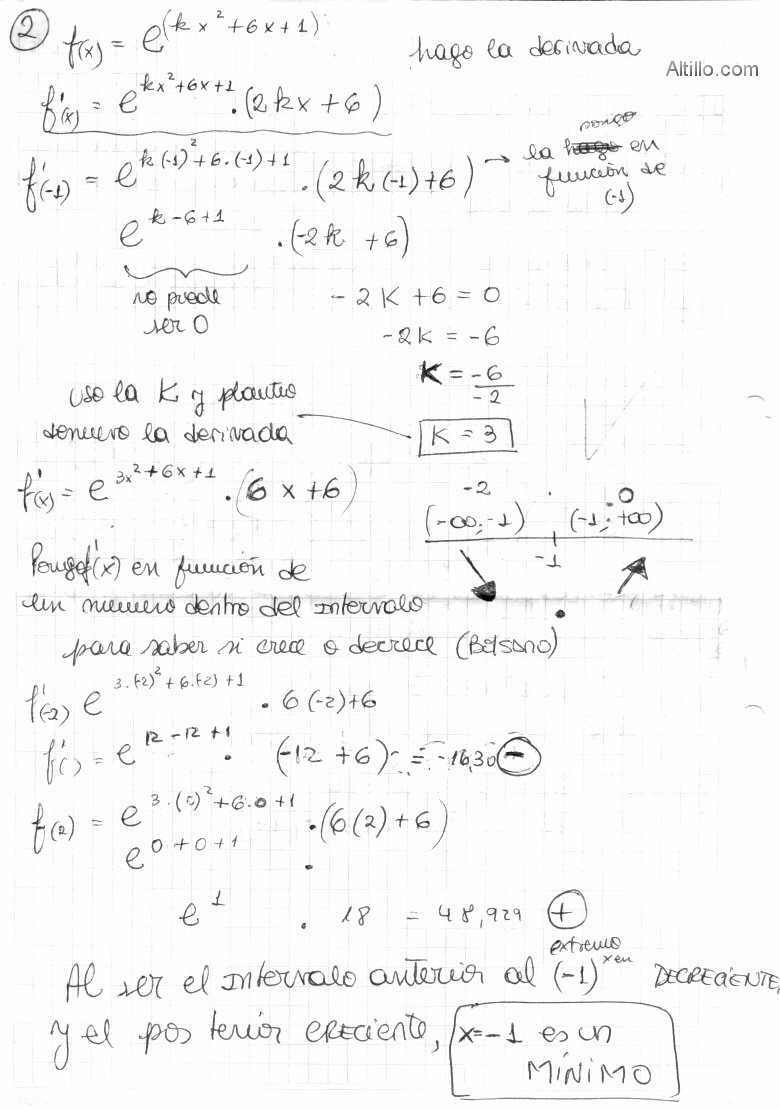 2 f(x) = e^(kx²+6x+1) hago la derivada
Altillo.com
f'(x) = e^kx²+6x+1 . (2kx + 6)
f'(-1) = e^k(-1)²+6.(-1)+1 . (2k(-1)+6) → la pongo en
función de
(-1)
e^k-6+1 . (-2k + 6)
no puede
ser 0
-2K + 6 = 0
-2k = -6
K = -6/-2
K = 3
uso la K y planteo
denuevo la derivada
f'(x) = e^3x²+6x+1 . (6x+6)
-2 . 0
(-∞;-1) (-1;+∞)
-1
Pongo f'(x) en función de
un numero dentro del intervalo
para saber si crece o decrece (Bolsano)
f'(-2) e^3.(-2)²+6.(-2)+1 . 6(-2)+6
f'( ) = e^12-12+1 . (-12+6) = -16,30 -
f(2) = e^3.(0)²+6.0+1 . (6(2)+6)
e^0+0+1 .
e^1 . 18 = 48,929 +
extremo
Al ser el intervalo anterior al (-1) x en DECRECIENTE,
y el posterior CRECIENTE, x=-1 es un
MÍNIMO